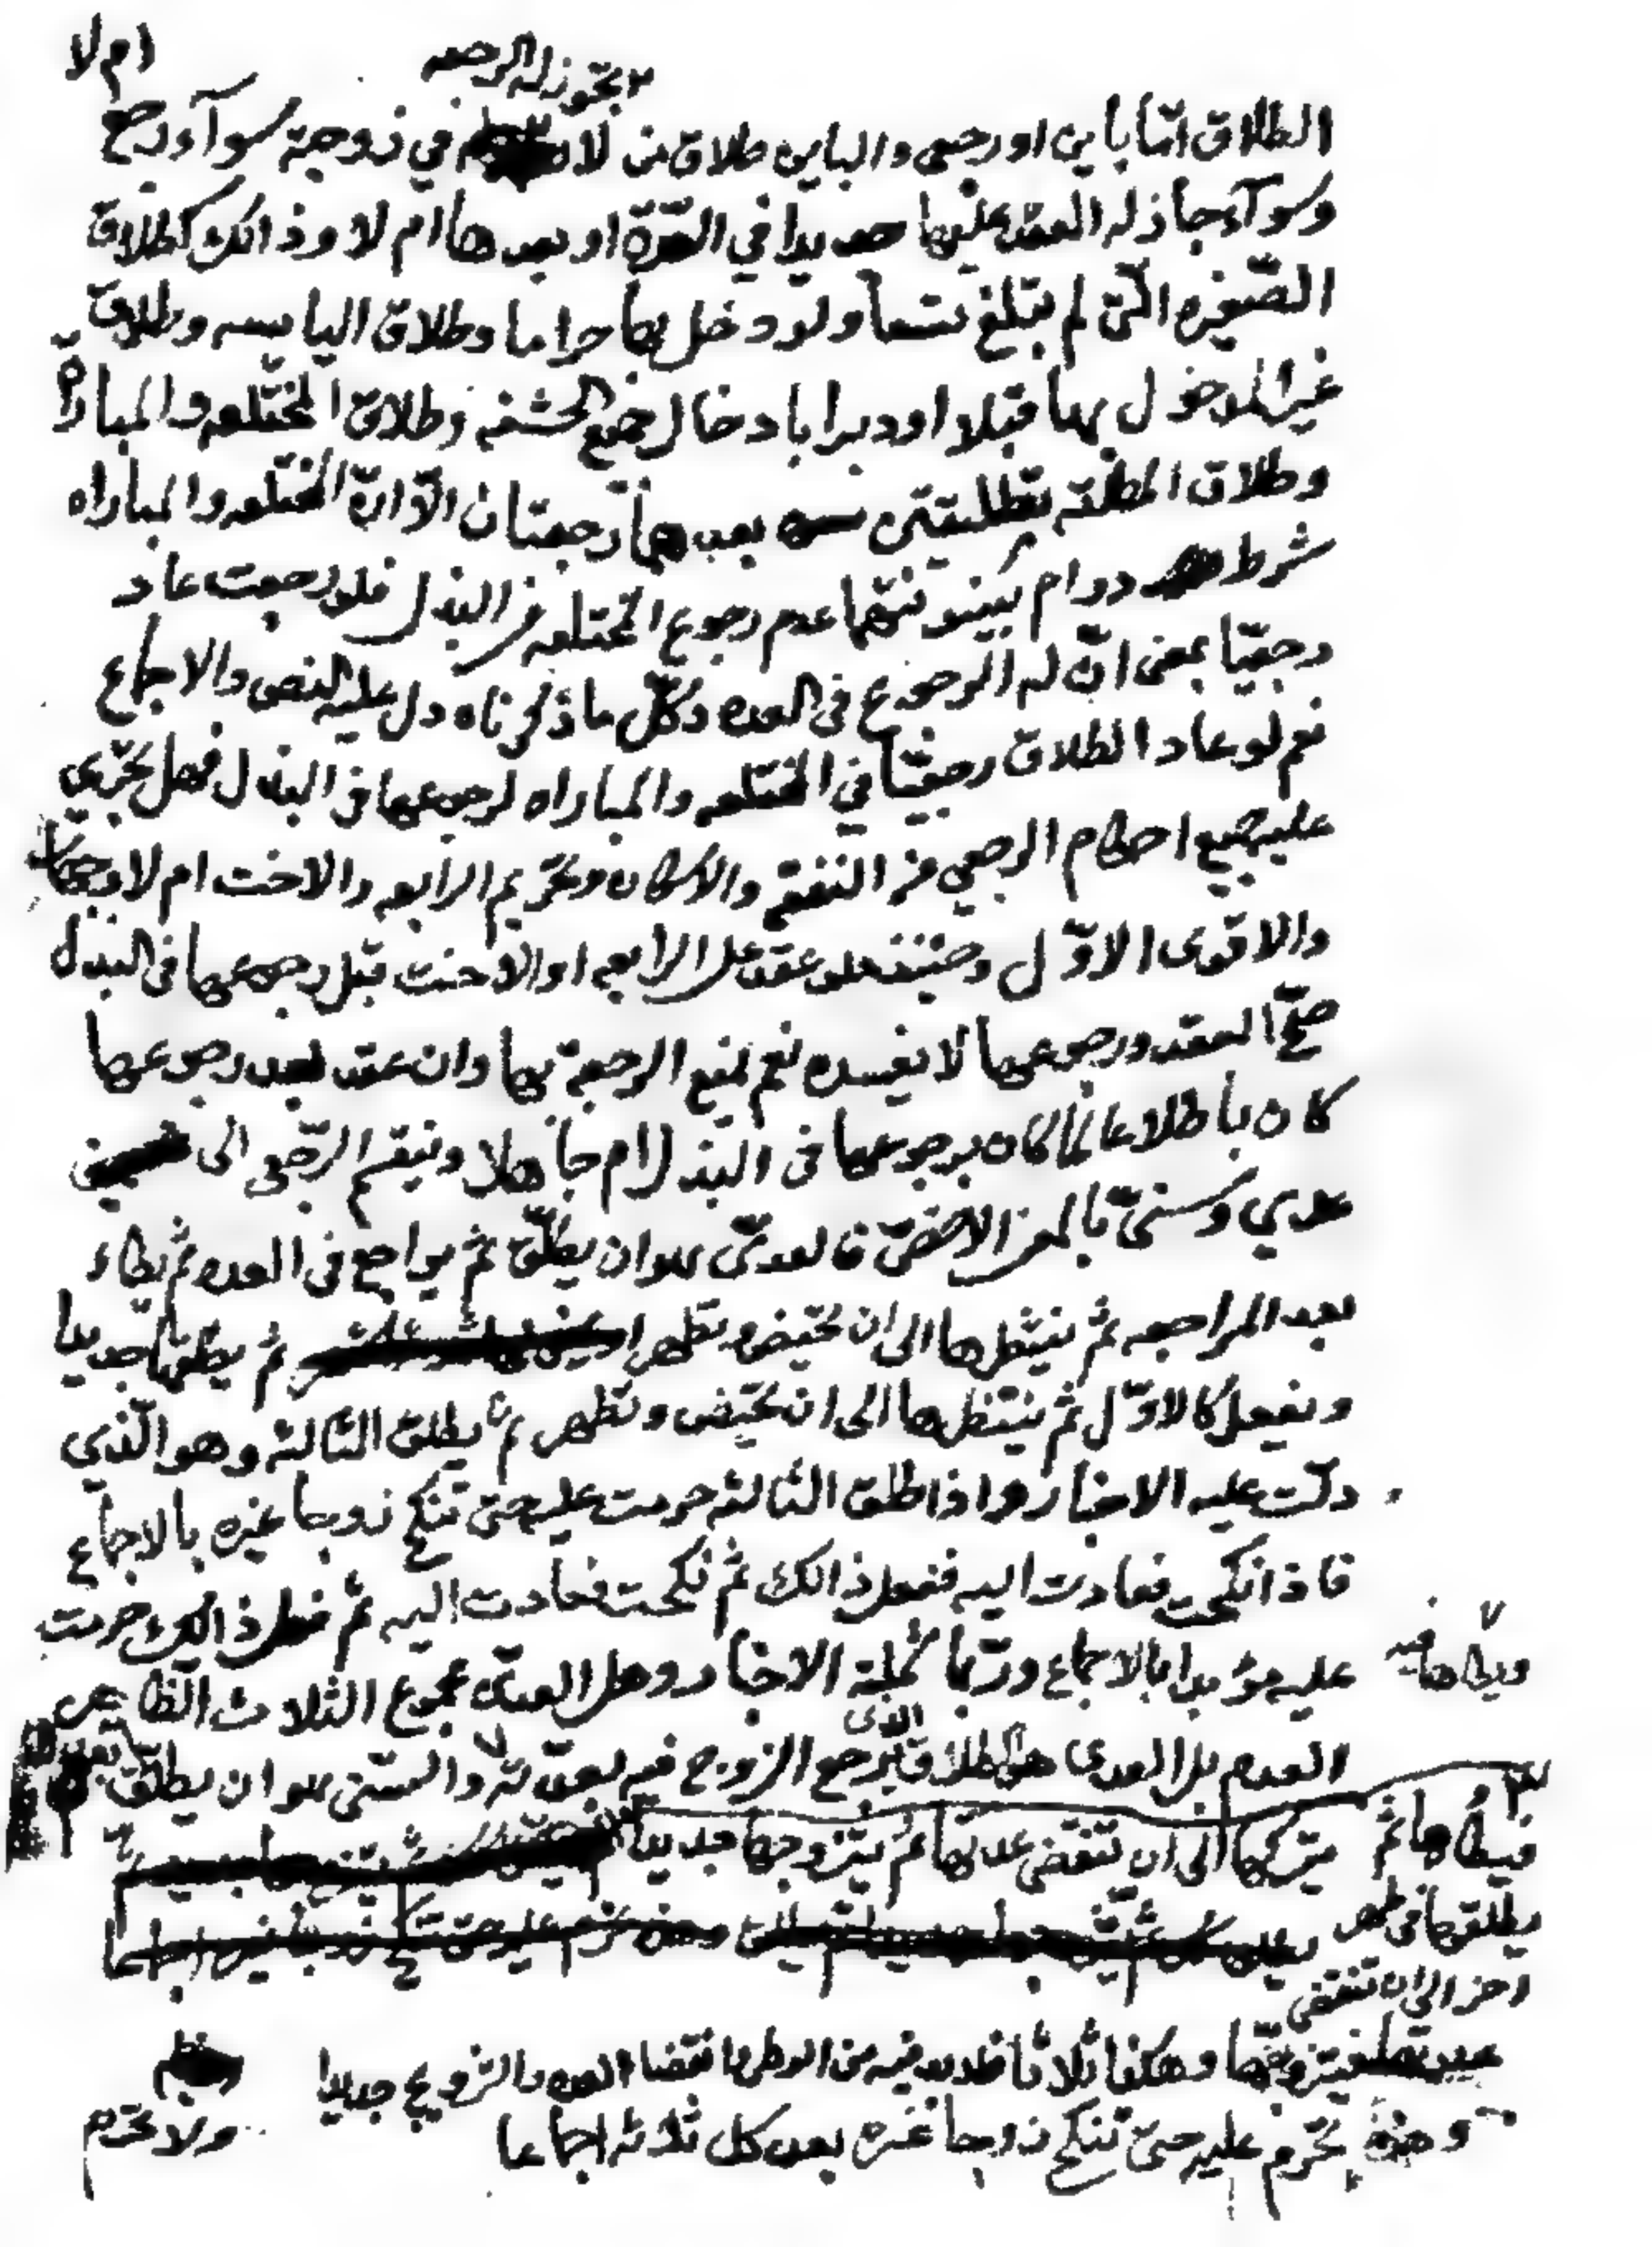 ام لا
يجوز له الرجعه
الطلاق امّا باين او رجعي والباين طلاق من لا في زوجية سوآء رجع
وسوآء جاز له العقد عليها جديدا في العدّة او بعدها ام لا وذالك كطلاق
الصّغيره الّتي لم تبلغ تسعا ولو دخل بها حراما وطلاق اليايسه وطلاق
غير المدخول بها قبلا او دبرا بادخال جميع الحشفه وطلاق المختلعه والمباراة
وطلاق المطلّقه بتطليقتين بعدهما رجعتان الّا انّ المختلعه والمباراه
شرط دوام بينونتهما عدم رجوع المختلعه في البذل فلو رجعت عاد
رجعيّا بمعنى انّ له الرجوع في العده وكلّ ما ذكرناه دل عليه النص والاجماع
نعم لو عاد الطلاق رجعيّا في المختلعه والمباراه لرجوعها في البذل فهل يجري
عليه جميع احكام الرجعي من النفقه والاسكان وتحريم الرابعه والاخت ام لا وجهان
والاقوى الاوّل وحينئذ فلو عقد على الرابعه او الاخت قبل رجوعها في البذل
صحّ العقد ورجوعها لا يفسده نعم يمنع الرجعة بها وان عقد بعد رجوعها
كان باطلا عالما كان برجوعها في البذل ام جاهلا وينقسم الرّجعي الى
عدي وسنيّ بالمعنى الاخصّ فالعدّى هو ان يطلّق ثم يراجع في العده ثم يطاء
بعد المراجعه ثم ينتظرها الى ان تحيض وتطهر ثم يطلقها جديدا
ويفعل كالاوّل ثم ينتظرها الى ان تحيض وتطهر ثم يطلق الثالثه وهو الّذي
دلّت عليه الاخبار واذا طلق الثالثه حرمت عليه حتى تنكح زوجا غيره بالاجماع
فاذا نكحت فعادت اليه ففعل ذالك ثم نكحت فعادت اليه ثم فعل ذالك حرمت
عليه مؤبدا بالاجماع وربّما الاخبار وهل العدّى مجموع الثلاث الظاهر
ويطاها فيه
العدم بل العدى هو الطلاق الذى يرجع الزوج فيه بعدّته والسنّى هو ان يطلّق
فيطاها ثم يتركها الى ان تنقضي عدتها ثم يتزوجها جديدا
يطلقها في طهر
اخر الى ان تنقضي
عدتها فيتزوجها وهكذا ثلاثا فلابد فيه من الوطى وانقضا العده والتزويج جديدا
وهذه يحرم عليه حتى تنكح زوجا غيره بعد كل ثلاثه اجماعا ولا تحرم